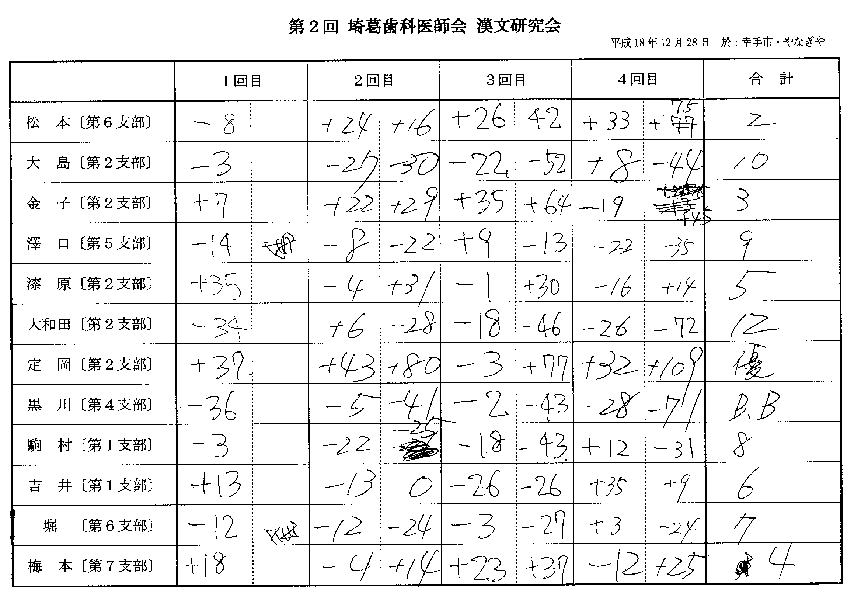 第2回 埼葛歯科医師会 漢文研究会
平成18年12月28日 於：幸手市・やなぎや
1回目 2回目 3回目 4回目 合計
松本〔第6支部〕 -8 +24 +16 +26 42 +33 75 2
大島〔第2支部〕 -3 -27 -30 -22 -52 +8 -44 10
金子〔第2支部〕 +7 +22 +29 +35 +64 -19 +45 3
澤口〔第5支部〕 -14 -8 -22 +9 -13 -22 -35 9
漆原〔第2支部〕 +35 -4 +31 -1 +30 -16 +14 5
大和田〔第2支部〕 -34 +6 -28 -18 -46 -26 -72 12
定岡〔第2支部〕 +37 +43 +80 -3 +77 +32 +109 優
黒川〔第4支部〕 -36 -5 -41 -2 -43 -28 -71 B.B
駒村〔第1支部〕 -3 -22 -25 -18 -43 +12 -31 8
吉井〔第1支部〕 +13 -13 0 -26 -26 +35 +9 6
堀〔第6支部〕 -12 -12 -24 -3 -27 +3 -24 7
梅本〔第7支部〕 +18 -4 +14 +23 +37 -12 +25 4